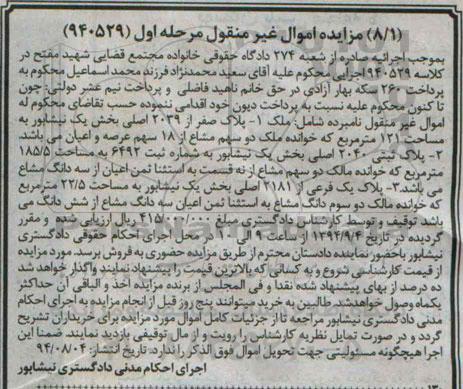 (۸/۱) مزایده اموال غیر منقول مرحله اول (۹۴۰۵۲۹)
بموجب اجرائیه صادره از شعبه ۲۷۴ دادگاه حقوقی خانواده مجتمع قضایی شهید مفتح در
کلاسه ۹۴۰۵۲۹ اجرایی محکوم علیه آقای سعید محمدنژاد فرزند محمد اسماعیل محکوم به
پرداخت ۲۶۰ سکه بهار آزادی در حق خانم ناهید فاضلی و پرداخت نیم عشر دولتی، چون
تا کنون محکوم علیه نسبت به پرداخت دیون خود اقدامی ننموده حسب تقاضای محکوم له
اموال غیر منقول نامبرده شامل: ملک ۱- پلاک صفر از ۲۰۳۹ اصلی بخش یک نیشابور به
مساحت ۱۲۱ مترمربع که خوانده ملک دو سهم مشاع از ۱۸ سهم عرصه و اعیان می باشد.
۲- پلاک ثبتی ۲۰۴۰ اصلی بخش یک نیشابور به شماره ثبت ۶۴۹۲ به مساحت ۱۸۵/۵
مترمربع که خوانده مالک دو سهم مشاع از نه قسمت به استثنا ثمن اعیان از سه دانگ مشاع
می باشد. ۳- پلاک یک فرعی از ۲۱۸۱ اصلی بخش یک نیشابور به مساحت ۲۲/۵ مترمربع
که خوانده مالک دو سوم دانگ مشاع به استثنا ثمن اعیان سه دانگ مشاع از شش دانگ می
باشد توقیف و توسط کارشناس دادگستری مبلغ ۴۱۵/۰۰۰/۰۰۰ ریال ارزیابی شده و مقرر
گردیده در تاریخ ۱۳۹۴/۹/۴ از ساعت ۹ الی ۱۰ در محل اجرای احکام حقوقی دادگستری
نیشابور باحضور نماینده دادستان محترم از طریق مزایده حضوری به فروش برسد. مورد مزایده
از قیمت کارشناسی شروع و به کسانی که بالاترین قیمت را پیشنهاد نمایند واگذار خواهد شد
ده درصد از بهای پیشنهاد شده نقدا و فی المجلس از برنده مزایده اخذ و الباقی آن حداکثر
یکماه وصول خواهدشد. طالبین به خرید میتوانند پنج روز قبل از انجام مزایده به اجرای احکام
مدنی دادگستری نیشابور مراجعه تا از جزئیات کامل اموال مورد مزایده برای خریداران تشریح
گردد و در صورت تمایل نظریه کارشناس را رویت و از مال توقیفی بازدید نمایند. ضمنا این
اجرا هیچگونه مسئولیتی جهت تحویل اموال فوق الذکر را ندارد. تاریخ انتشار: ۹۴/۰۸/۰۴
اجرای احکام مدنی دادگستری نیشابور